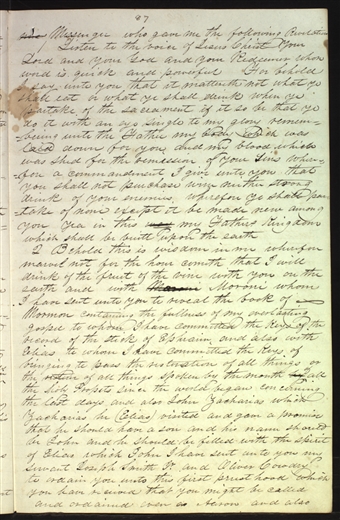 37
Messenger who gave me the following Revelation
Listen to the voice of Jesus Christ Your
Lord and Your God and Your Redeemer whose
word is quick and powerful For behold
I say unto you that it mattereth not what ye
shall eat or what ye shall drink when ye
partake of the sacrament if it so be that ye
do it with an eye single to my glory remem-
-bering unto the Father my body which was
laid down for you and my blood which
was shed for the remission of your sins where-
for a commandment I give unto you that
you shall not Purchase wine neither strong
drink of your enemies wherefor ye shall par
take of none except it be made new among
you Yea in this my Fathers Kingdom
which shall be built upon the earth
2 Behold this is wisdom in me wherefor
marvel not for the hour cometh that I will
drink of the fruit of the vine with you on the
earth and with Moroni whom
I have sent unto you to reveal the book of
Mormon containing the fullness of my everlasting
gospel to whom I have committed the Keys of the
record of the stick of Ephraim and also with
Elias to whom I have committed the Keys of
bringing to pass the restoration of all things or
the of all things spoken by the mouth of all
the Holy Prophets since the world began concerning
the last days and also John Zacharias which
Zacharias he (Elias) visited and gave a promise
that he should have a son and his name should
be John and he should be filled with the spirit
of Elias which John I have sent unto you my
servant Joseph Smith Jr and Oliver Cowdery
to ordain you unto this first priesthood which
you have received that you might be called
and ordained even as Aaron and also